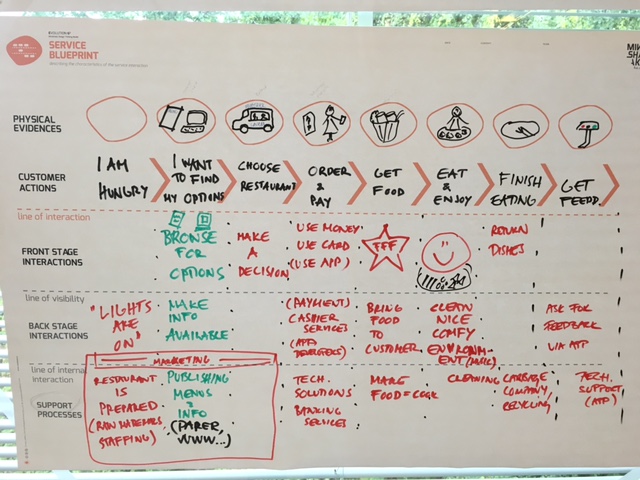 SERVICE
BLUEPRINT
PHYSICAL
EVIDENCES
CUSTOMER
ACTIONS
I AM
HUNGRY
I WANT
TO FIND
MY OPTIONS
CHOOSE
RESTAURANT
ORDER
&
PAY
GET
FOOD
EAT
&
ENJOY
FINISH
EATING
GET
FEEDD.
line of interaction
FRONT STAGE
INTERACTIONS
BROWSE
FOR
OPTIONS
MAKE
A
DECISION
USE MONEY
USE CARD
(USE APP)
FFF
RETURN
DISHES
line of visibility
BACK STAGE
INTERACTIONS
"LIGHTS
ARE
ON"
MAKE
INFO
AVAILABLE
(PAYMENT)
CASHIER
SERVICES
(APP
DEVELOPERS)
BRING
FOOD
TO
CUSTOMER
CLEAN
NICE
COMFY
ENVIRONM-
ENT (MUSIC)
ASK FOR
FEEDBACK
VIA APP
line of internal
interaction
SUPPORT
PROCESSES
MARKETING
RESTAURANT
IS
PREPARED
(RAW MATERIALS
STAFFING)
PUBLISHING
MENUS
&
INFO
(PAPER,
WWW...)
TECH.
SOLUTIONS
BANKING
SERVICES
MAKE
FOOD = COOK
CLEANING
GARBAGE
COMPANY,
RECYCLING
TECH.
SUPPORT
(APP)